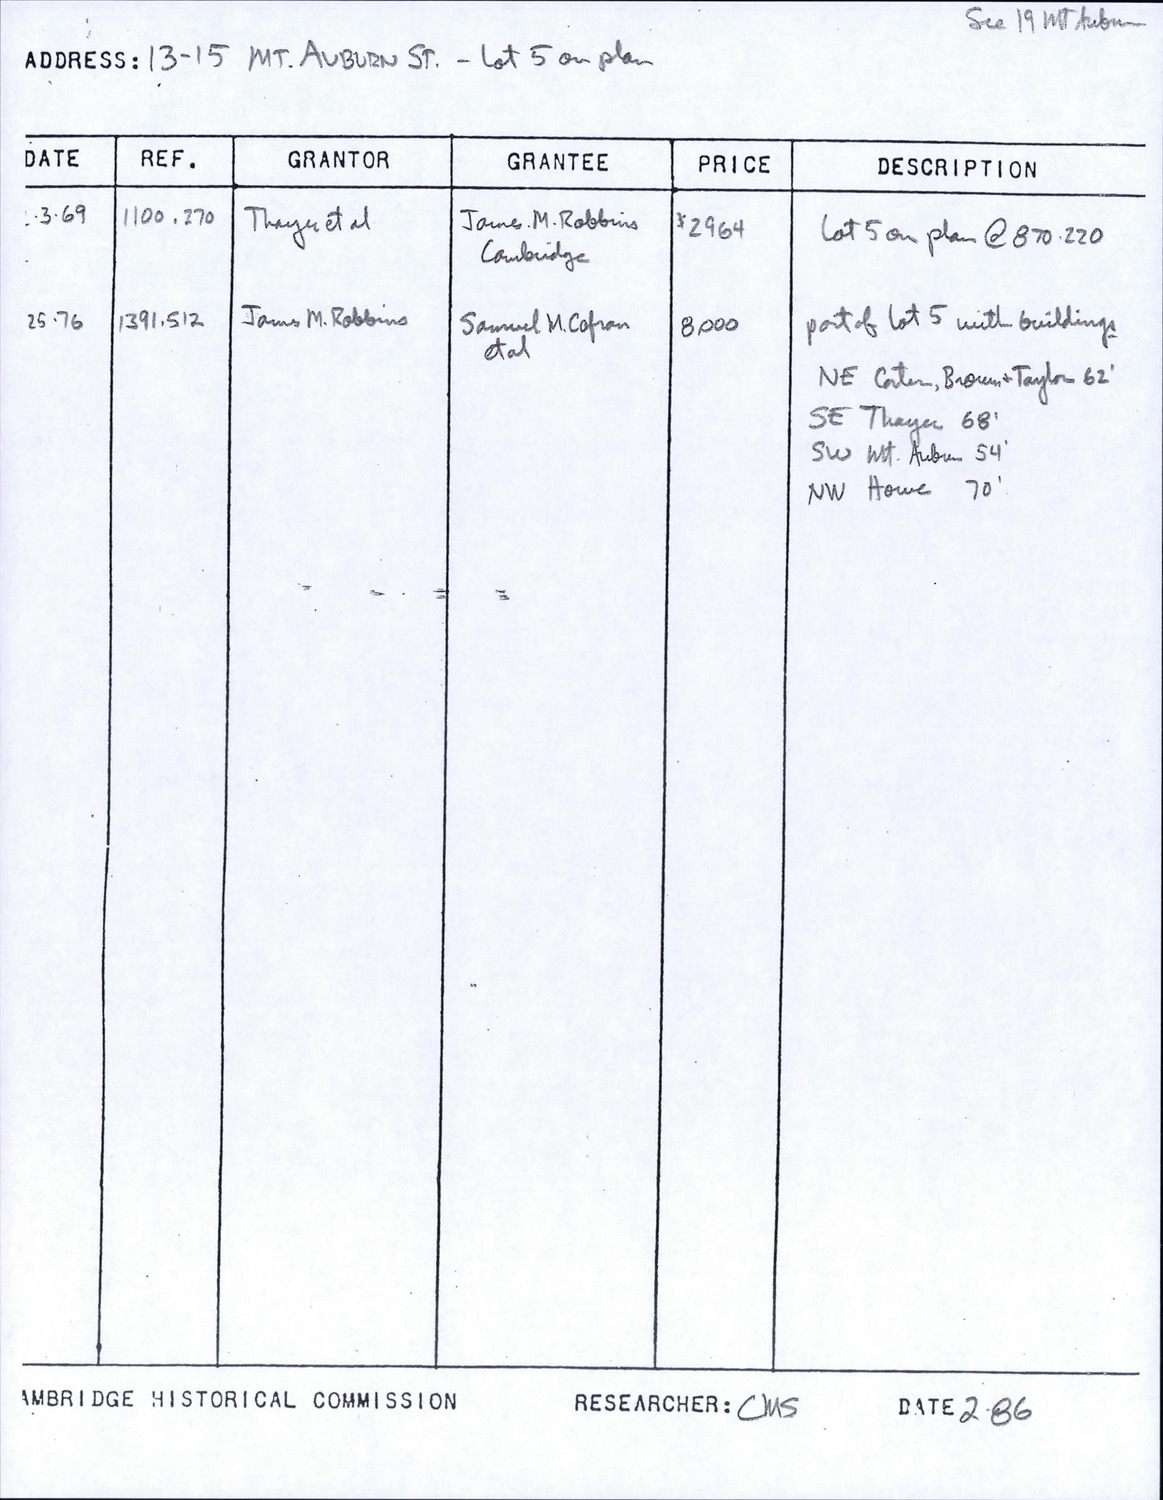 See 19 Mt Auburn
ADDRESS: 13-15 MT. AUBURN ST. - Lot 5 on plan
DATE REF. GRANTOR GRANTEE PRICE DESCRIPTION
.3.69 1100.270 Thayer et al James M. Robbins $2964 Lot 5 on plan @ 870.220
Cambridge
25.76 1391.512 James M. Robbins Samuel M. Cofran 8,000 part of Lot 5 with buildings
et al
NE Brown + Taylor 62'
SE Thayer 68'
SW Mt. Auburn 54'
NW Howe 70'
AMBRIDGE HISTORICAL COMMISSION RESEARCHER: CMS DATE 2.86